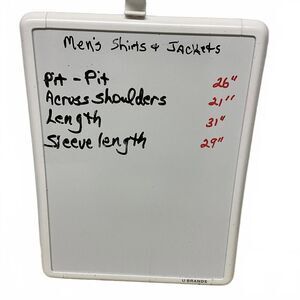 Men's Shirts & Jackets
Pit - Pit 26"
Across Shoulders 21"
Length 31"
Sleeve length 29"
U BRANDS